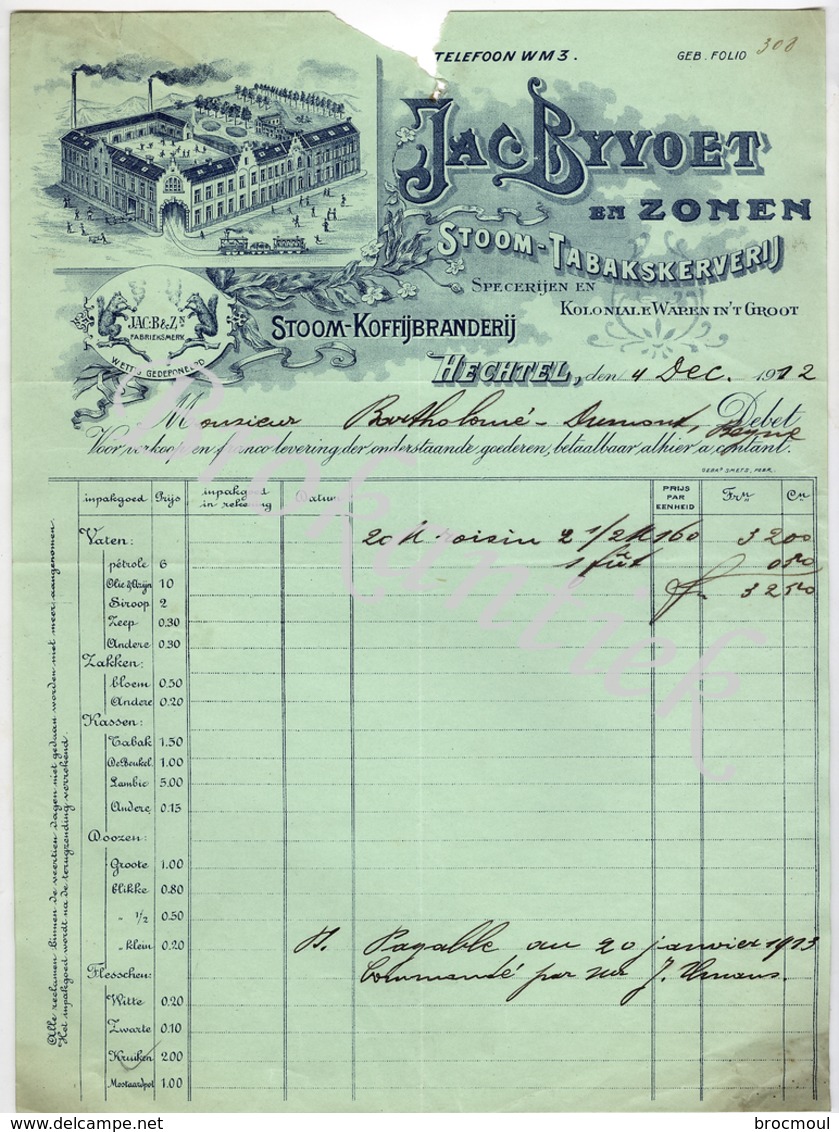 TELEFOON WM3.
GEB. FOLIO 308
JAC. BYVOET
EN ZONEN
STOOM-TABAKSKERVERIJ
SPECERIJEN EN
KOLONIALE WAREN IN'T GROOT
JAC: B & ZN
FABRIEKSMERK
WETTIG GEDEPONEERD
STOOM-KOFFIJBRANDERIJ
HECHTEL, den 4 Dec. 1912
Monsieur Bartholomé-Dumont, Debet
Beyne
Voor verkoop en franco levering der onderstaande goederen, betaalbaar alhier a contant.
DEBR. SMETS, FOBR.
inpakgoed Prijs inpakgoed in rekening Datum PRIJS PAR EENHEID Frn Cn
Vaten: 20 K 2 1/2 K 160 3200
pétrole 6 1 fût 050
Olie & Azijn 10 3250
Siroop 2
Zeep 0.30
Andere 0.30
Zakken:
bloem 0.50
Andere 0.20
Kassen:
Tabak 1.50
De Beukel. 1.00
Lambic 5.00
Andere 0.15
Doozen:
Groote 1.00
blikke 0.80
„ 1/2 0.50
„ klein 0.20 Payable au 20 janvier 1913
Flesschen: Commandé par
Witte 0.20
Zwarte 0.10
Kruiken 2.00
Mostaardpot 1.00
Alle reclamen binnen de veertien dagen niet gedaan worden niet meer aangenomen.
Het inpakgoed wordt na de terugzending verrekend.
Brokantiek
www.delcampe.net
brocmoul